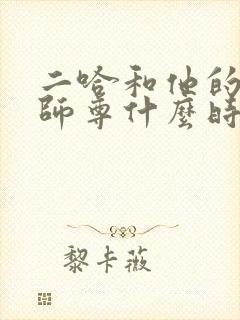 二哈和他的
師尊什麼時
黎卡薇